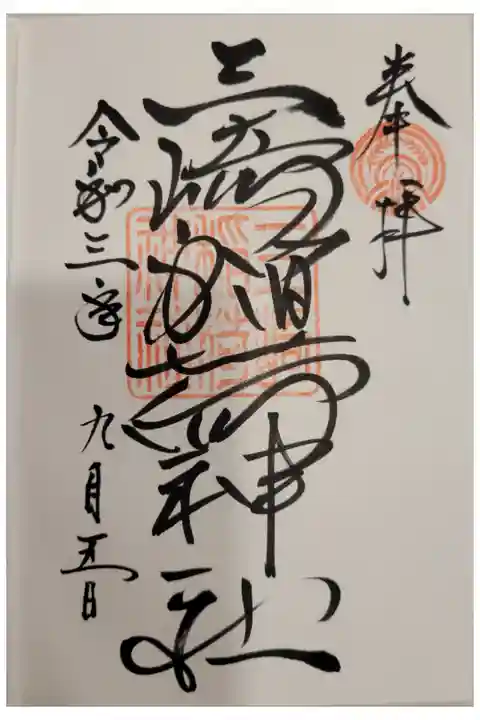 奉拝
三崎稲荷神社
令和三年 九月五日